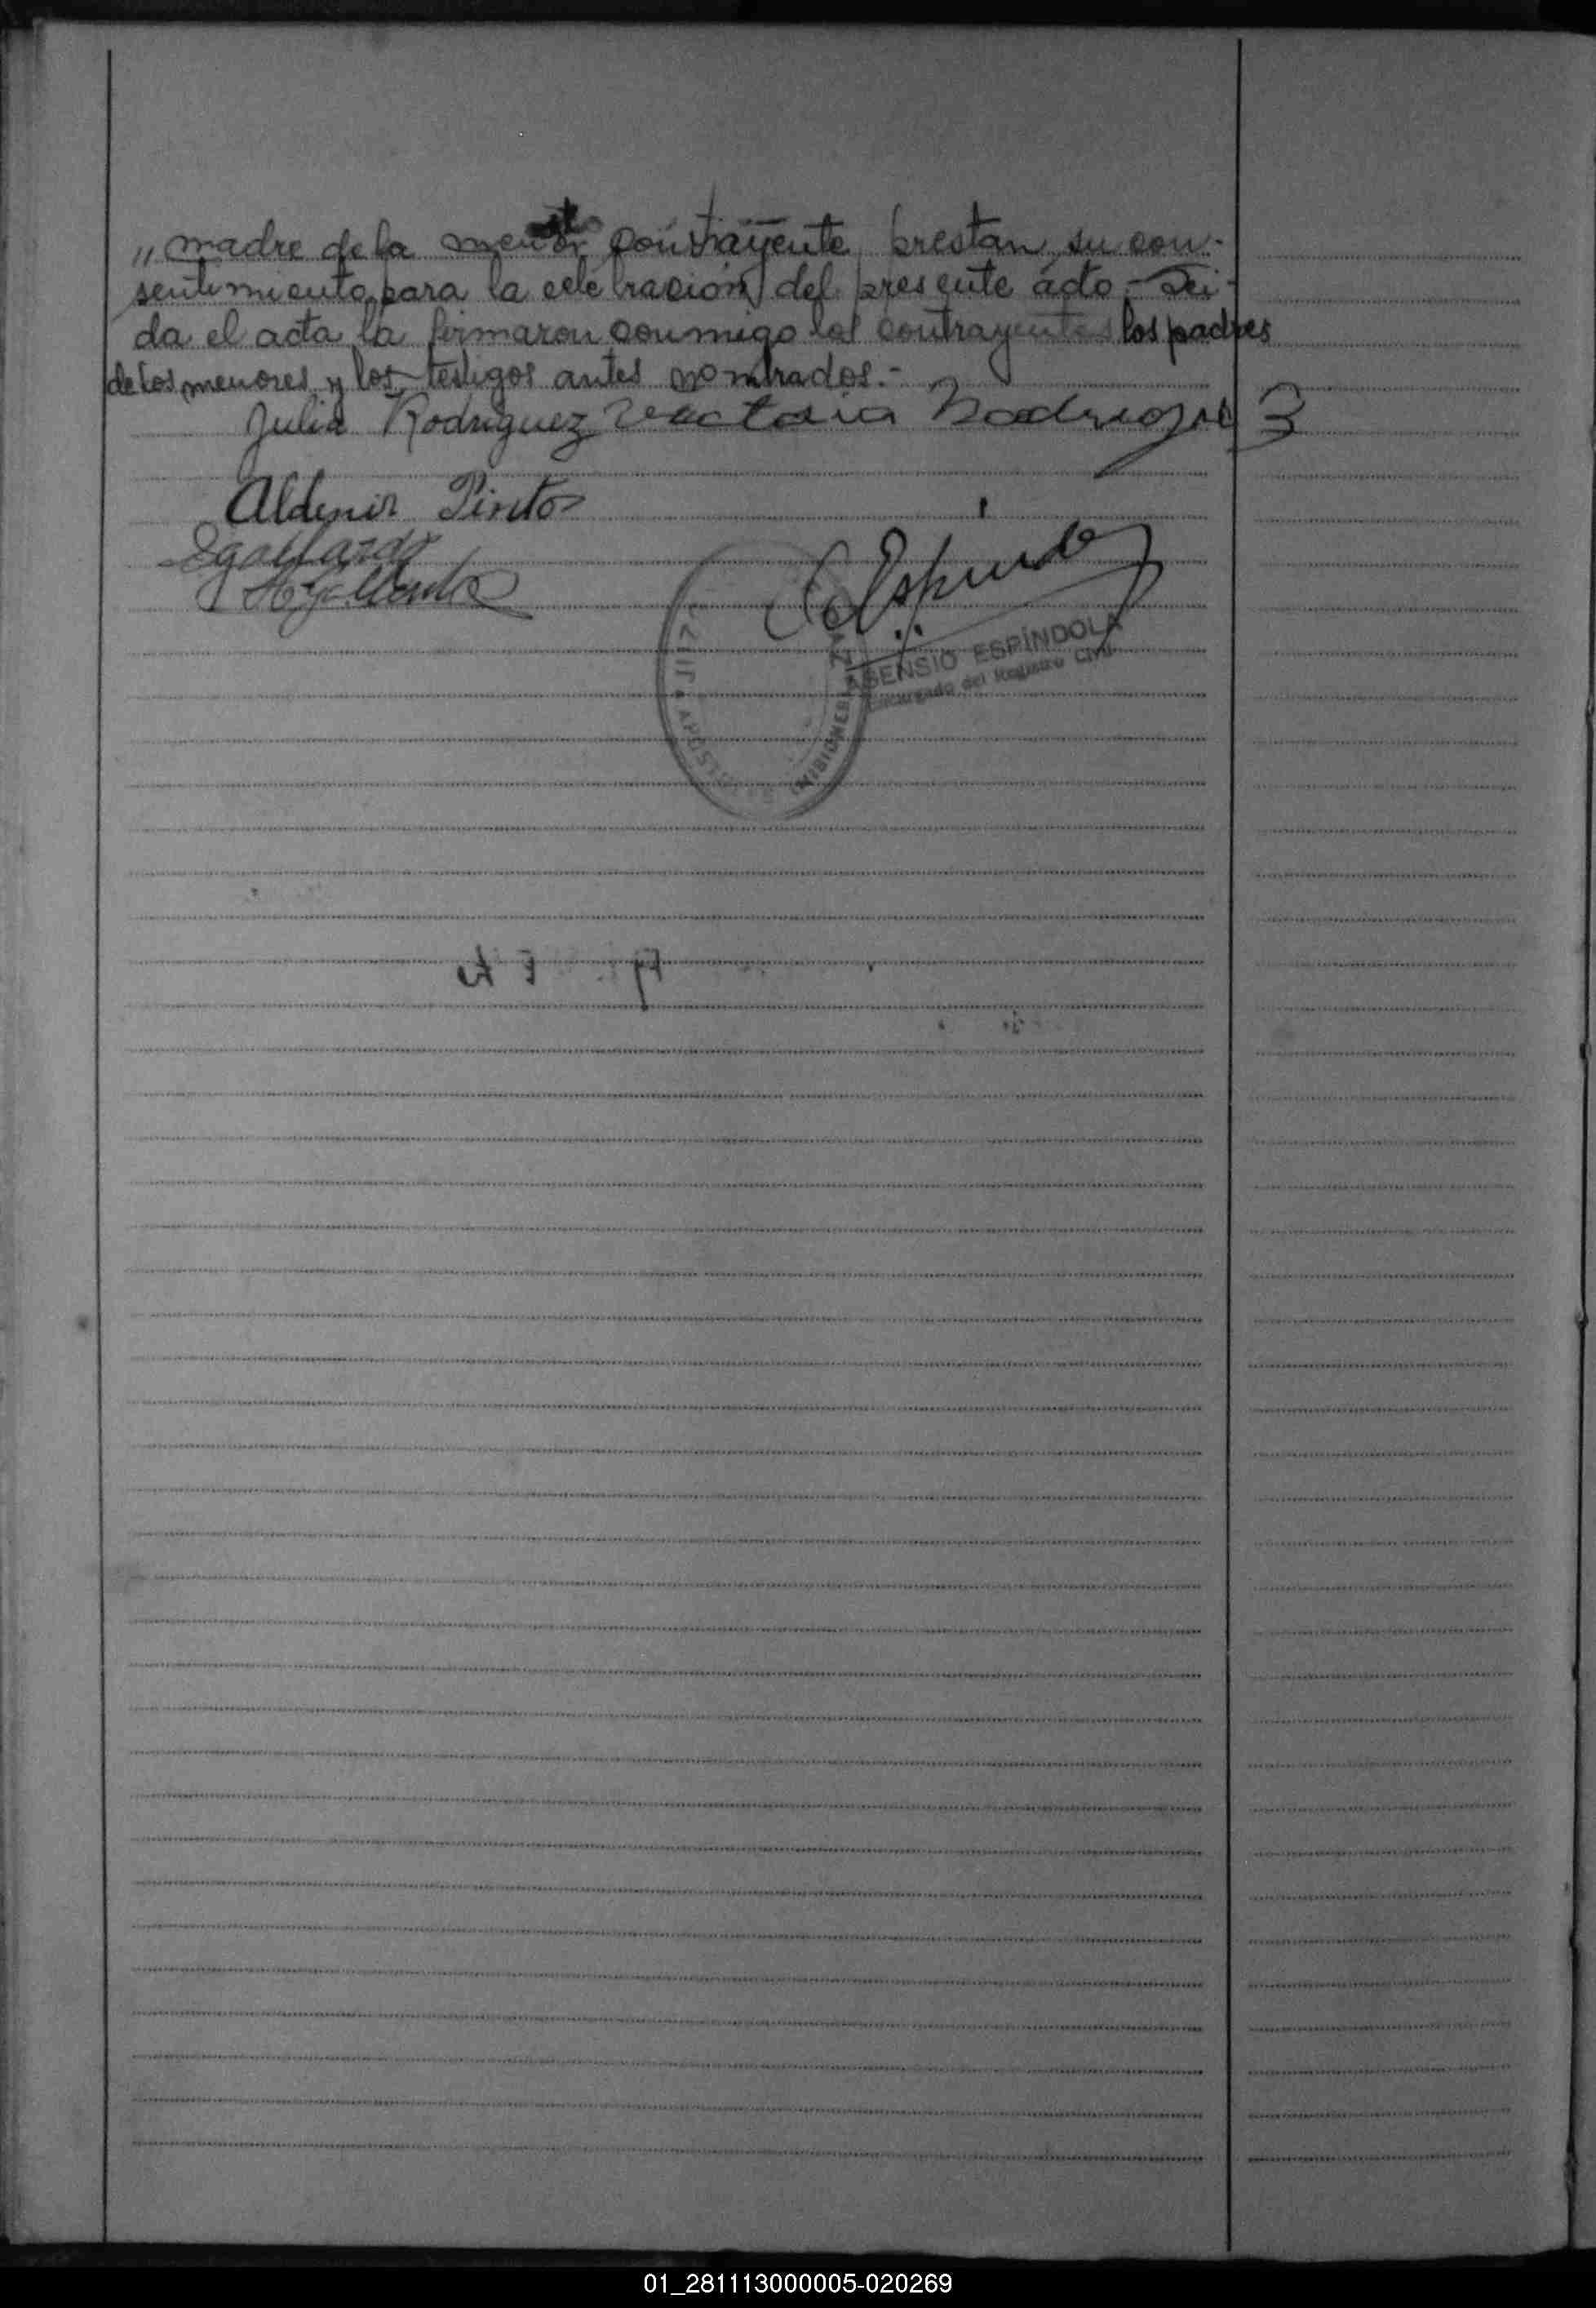 „ madre de la menor contrayente prestan su con-
sentimiento para la celebración del presente acto.- Lei-
da el acta la firmaron conmigo los contrayentes los padres
de los menores y los testigos antes nombrados.-
Julia Rodriguez Victoria Rodriguez
Aldenir Pinto
Egallardo
Espindola
ASENSIO ESPÍNDOLA
Encargado del Registro Civil
MISIONES
01_281113000005-020269